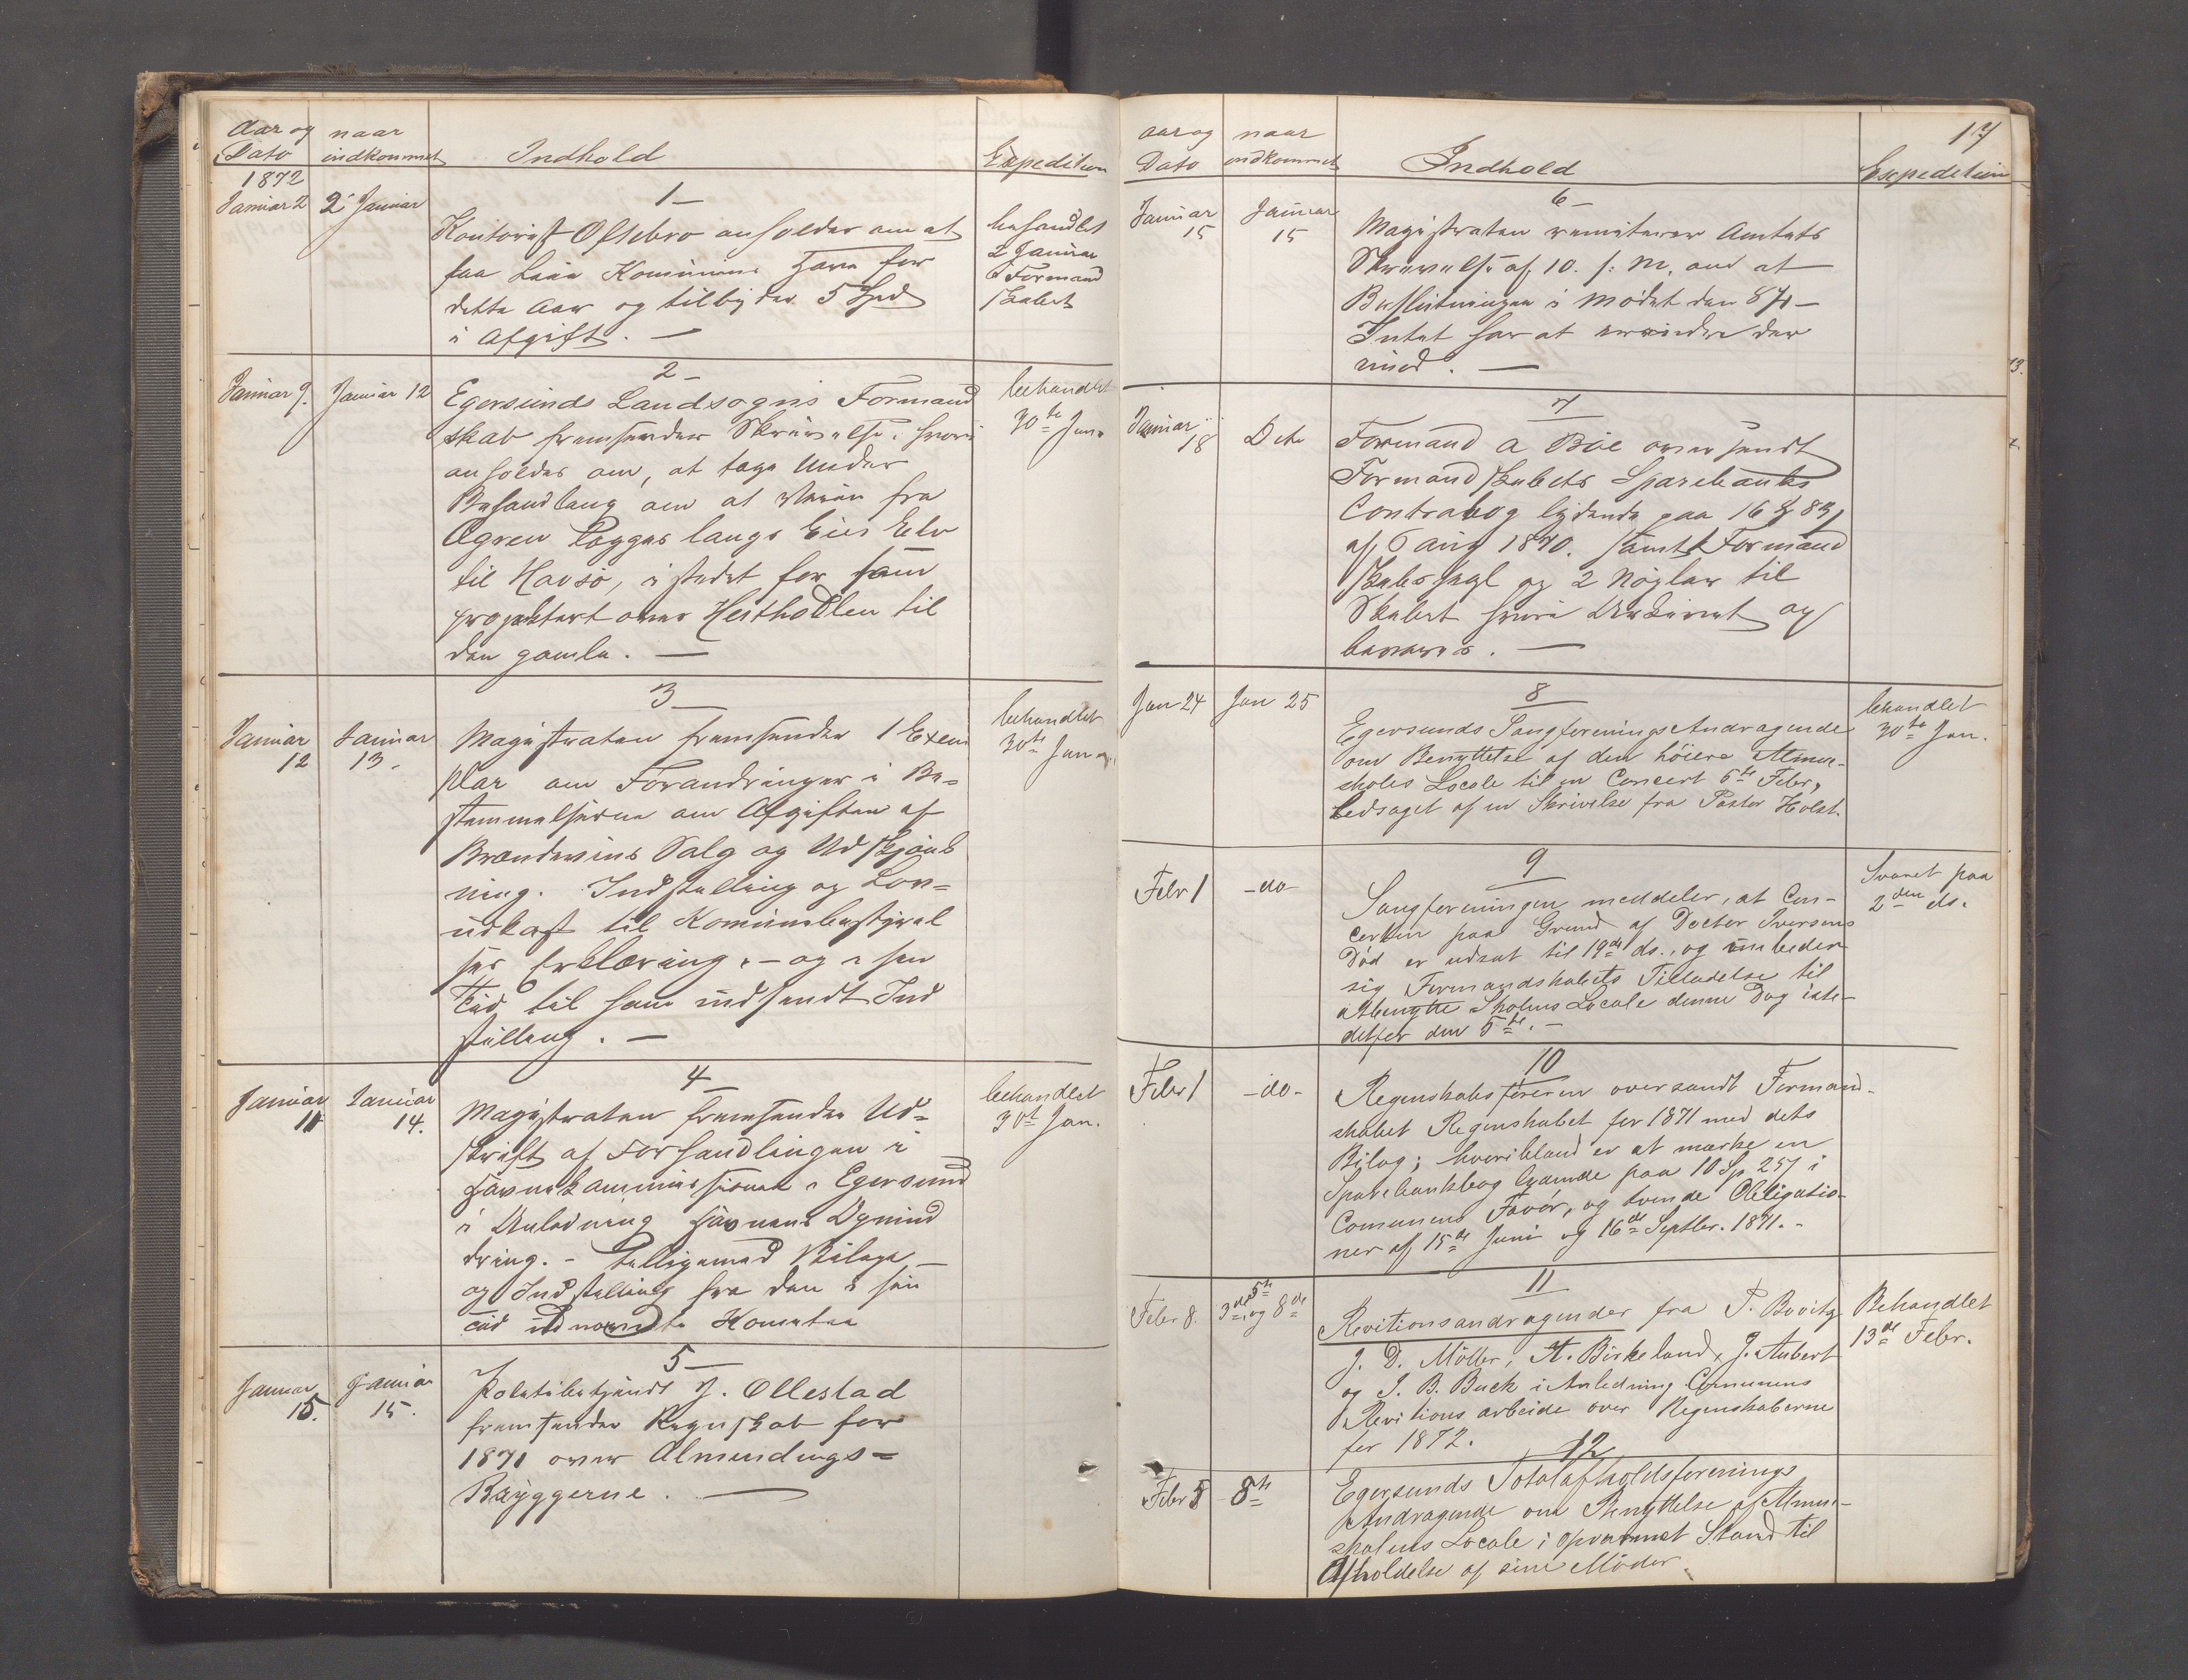 Aar og naar
Dato indkommet Indhold Expedition
1872
Januar 2 2 Januar
1
Kontorist Olsebro anholder om at
faa Leie Komunens Have for
dette Aar og tilbyder 5 Spd
i Afgift. —
behandlet
2 Januar
i Formand
skabet
Januar 9. Januar 12
2
Egersunds Landsogns Formand
skab fremsender Skrivelse, hvori
anholdes om, at tage Under
Behandling om at Veien fra
Øgrei lægges langs Eie Elv
til Havsø, i stedet for som
projektert over Hestholllen til
den gamle. —
behandlet
30te Jan.
Januar 12 Januar 13.
3
Magistraten fremsender 1 Exem
plar om Forandringer i Be=
stemmelserne om Afgiften af
Brændevins Salg og Udskjænk
ning. Indstilling og Lov=
udkast til Komunebestyrel
ses Erklæring. — og i sin
Tid til ham indsendt Ind
stilling. —
behandlet
30te Jan.
Januar 11 Januar 14.
4
Magistraten fremsender Ud=
skrift af Forhandlingen i
Havnekommissionen i Egersund
i Anledning Havnens Opmud
dring. — Tilligemed Bilage
og Indstilling fra den i sin
Tid udnævnte Komitee
behandlet
30te Jan.
Januar 15. Januar 15.
5
Politibetjendt J. Ollestad
fremsender Regnskab for
1871 over Almindings=
Bryggerne. —
17
Aar og naar
Dato indkommet Indhold Expedition
Januar 15 Januar 15
6
Magistraten remiterer Amtets
Skrivelse af 10. s: M. om at
Beslutningen i Mødet den 8/1 —
Intet har at erindre der
imod. —
Januar 18 Dito
7
Formand A Bøe oversendt
Formandskabets Sparebanks
Contrabog lydende paa 16 83
af 6 Aug 1870. samt Formand
skabs Segl og 2 Nøgler til
Skabet hvori Arkivet og
bevares. —
Jan 24 Jan 25
8
Egersunds Sangforenings Andragende
om Benyttelse af den høiere Almue-
skoles Locale til en Concert 5te Febr,
ledsaget af en Skrivelse fra Pastor Holst.
behandlet
30te Jan.
Febr 1 -do-
9
Sangforeningen meddeler, at Con-
certen paa Grund af Doctor Iversens
Død er udsat til 19de ds., og udbeder
sig Formandskabets Tilladelse til
at benytte Skolens Locale denne Dag iste-
detfor den 5te. —
Svaret paa
2den ds.
Febr 1 -do-
10
Regnskabsføreren oversendt Formand-
skabet Regnskabet for 1871 med dets
Bilag; hvoriblandt er at mærke en
Sparebankbog lydende paa 10 Sp 257 i
Comunens Favør, og tvende Obligatio-
ner af 15de Juni og 16de Septbr. 1871. -
Febr 8. 3de, 5te og 8de
11
Revitionsandragender fra P. Bovitz
J. D. Møller, A. Birkeland, J. Aubert
og I. B. Buck i Anledning Comunens
Revitions arbeide over Regnskaberne
for 1872.
Behandlet
13de Febr.
Febr 8 8te
12
Egersunds Totalafholdsforenings
Andragende om Benyttelse af Almue-
skolens Locale i opvarmet Stand til
Afholdelse af sine Møder.